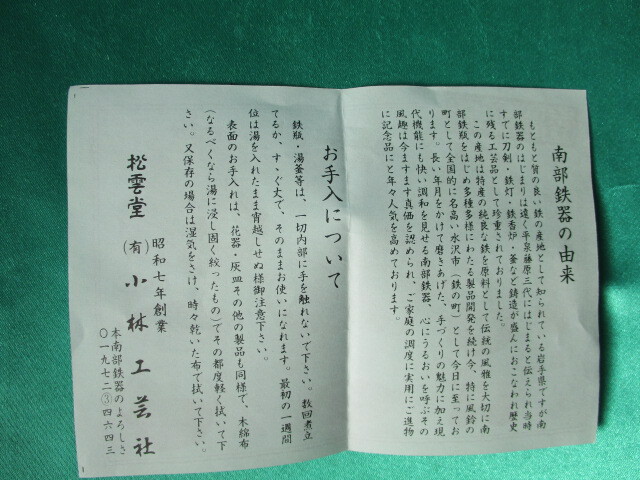 南部鉄器の由来
もともと質の良い鉄の産地として知られている岩手県ですが南
部鉄器のはじまりは遠く平泉藤原三代にはじまると伝えられ当時
すでに刀剣・鉄灯・鉄香炉・釜など鋳造が盛んにおこなわれ歴史
に残る工芸品として珍重されておりました。
この産地は特産の純良な鉄を原料として伝統の風雅を大切に南
部鉄瓶をはじめ多種多様にわたる製品開発を続け今、特に風鈴の
町として全国的に名高い水沢市(鉄の町)として今日に至ってお
ります。長い年月をかけて磨きあげた、手づくりの魅力に加え現
代機能にも快い調和を見せる南部鉄器、心にうるおいを呼ぶその
風趣は今ますます真価を認められ、ご家庭の調度に実用にご進物
に記念品にと年々人気を高めております。
お手入について
鉄瓶・湯釜等は、一切内部に手を触れないで下さい。数回煮立
てるか、すゝぐ丈で、そのままお使いになれます。最初の一週間
位は湯を入れたまま宵越しせぬ様御注意下さい。
表面のお手入れは、花器・灰皿その他の製品も同様で、木綿布
(なるべくなら湯に浸し固く絞ったもの)でその都度軽く拭いて下
さい。又保存の場合は湿気をさけ、時々乾いた布で拭いて下さい。
昭和七年創業
松雲堂 (有)小林工芸社
本南部鉄器のよろしさ
〇一九七二③四六四三